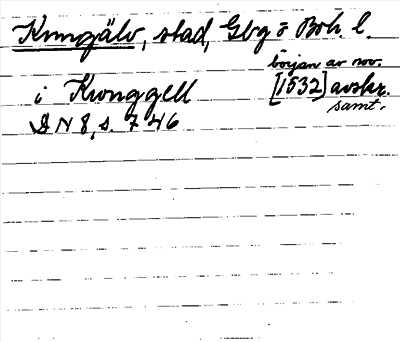 Kungälv, stad, Gbg o Boh. l.
början av nov.
i Kwonggell [1532] avskr.
samt.
DN 8, s. 746